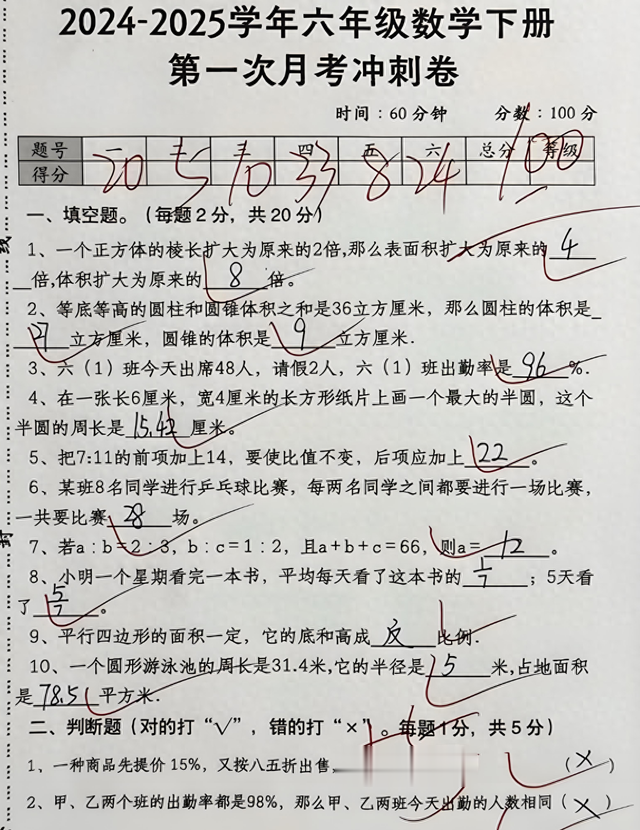 2024-2025学年六年级数学下册
第一次月考冲刺卷
时间：60分钟 分数：100分
题号 一 二 三 四 五 六 总分 等级
得分 20 5 10 33 8 24 100
一、填空题。（每题2分，共20分）
1、一个正方体的棱长扩大为原来的2倍,那么表面积扩大为原来的 4
倍,体积扩大为原来的 8 倍。
2、等底等高的圆柱和圆锥体积之和是36立方厘米，那么圆柱的体积是
27 立方厘米，圆锥的体积是 9 立方厘米.
3、六（1）班今天出席48人，请假2人，六（1）班出勤率是 96 %.
4、在一张长6厘米，宽4厘米的长方形纸片上画一个最大的半圆，这个
半圆的周长是 15.42 厘米。
5、把7:11的前项加上14，要使比值不变，后项应加上 22 。
6、某班8名同学进行乒乓球比赛，每两名同学之间都要进行一场比赛，
一共要比赛 28 场。
7、若a：b=2：3，b：c=1：2，且a+b+c=66，则a= 12 。
8、小明一个星期看完一本书，平均每天看了这本书的 1/7 ；5天看
了 5/7 。
9、平行四边形的面积一定，它的底和高成 反 比例.
10、一个圆形游泳池的周长是31.4米,它的半径是 5 米,占地面积
是 78.5 平方米.
二、判断题（对的打“√”，错的打“×”）。每题1分，共5分）
1、一种商品先提价15%，又按八五折出售, （×）
2、甲、乙两个班的出勤率都是98%，那么甲、乙两班今天出勤的人数相同（×）
线
封